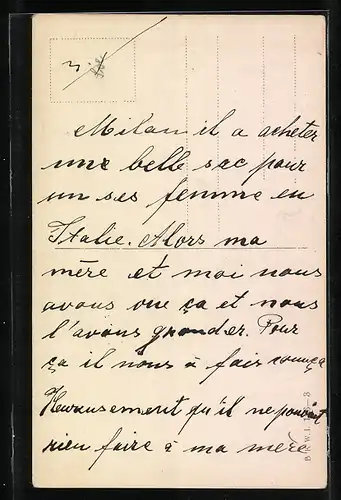 Milan il a acheter
une belle sac pour
un ses femme en
Italie. Alors ma
mère et moi nous
avous vue ça et nous
l'avons gronder. Pour
ça il nous a fais comme ça
Heureusement qu'il ne pouvait
rien faire à ma mère